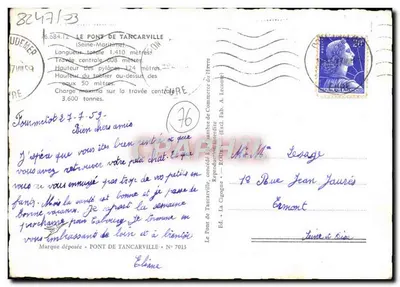 8247/23
76.584.72 LE PONT DE TANCARVILLE
(Seine-Maritime)
Longueur totale 1.410 mètres.
Travée centrale 608 mètres.
Hauteur des pylônes 124 mètres.
Hauteur du tablier au-dessus des
eaux 50 mètres.
Charge maxima sur la travée centrale
3.600 tonnes.
EURE
76
27-7-59
Bien chers amis
J'espère que vous êtes bien rentrés que
vous avez retrouvé votre petit chat et que
vous ne vous ennuyez pas trop de vos petits en
fants. Moi la santé est bonne et je passe de
bonne vacances. Je la semaine
prochaine pour Cabourg. Je termine en
vous embrassant de loin et à bientôt
Eliane
Marque déposée - PONT DE TANCARVILLE - N° 7013
Le Pont de Tancarville, Chambre de Commerce du Havre
Reproduction interdite
Ed. - La Cigogne -
20F
Mr Mme Lesage
18 Rue Jean Jaurès
Ermont
Seine et Oise